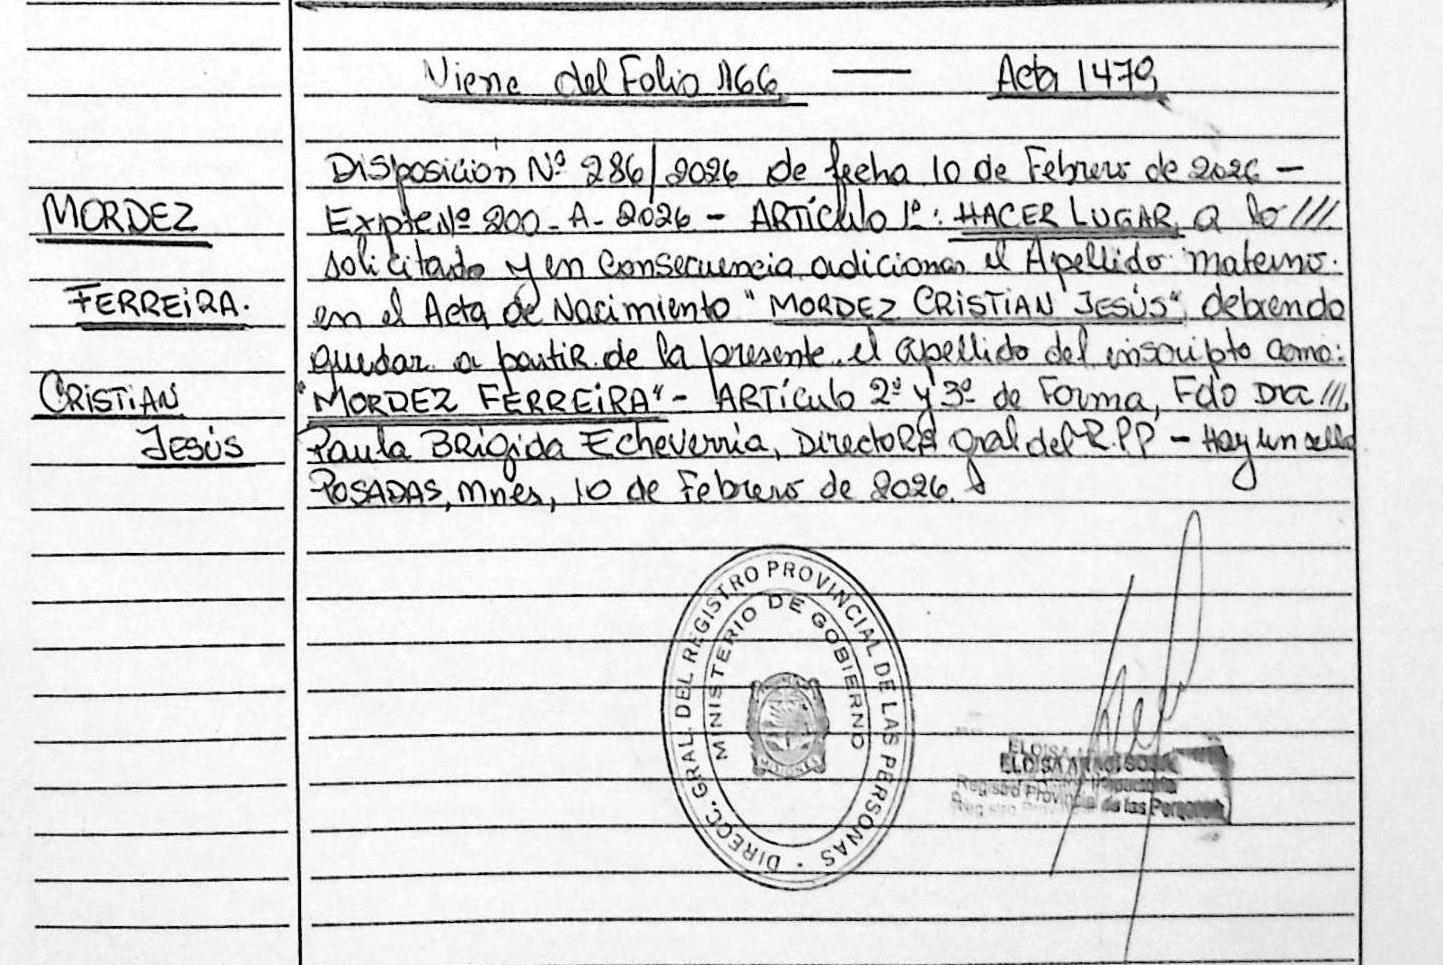 Viene del Folio 166 — Acta 1479
Disposición Nº 286/2026 de fecha 10 de Febrero de 2026 –
MORDEZ
Expte Nº 200-A-2026 – ARTÍCULO 1º: HACER LUGAR a lo ///
solicitado y en Consecuencia adicionar el Apellido materno
FERREIRA.
en el Acta de Nacimiento "MORDEZ CRISTIAN JESÚS", debiendo
quedar a partir de la presente el apellido del inscripto como:
CRISTIAN
"MORDEZ FERREIRA" – ARTÍCULO 2º y 3º de Forma, Fdo Dra ///
JESÚS
Paula BRígida Echeverria, DirectoRa Gral del R.PP – Hay un sello
POSADAS, Mnes, 10 de Febrero de 2026.
DIRECC. GRAL. DEL REGISTRO PROVINCIAL DE LAS PERSONAS
MINISTERIO DE GOBIERNO
ELOISA
ELOISA SOSA
Registro Provincial
Registro Provincial de las Personas